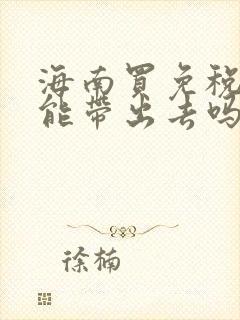 海南買免稅
能帶出去吗
徐楠